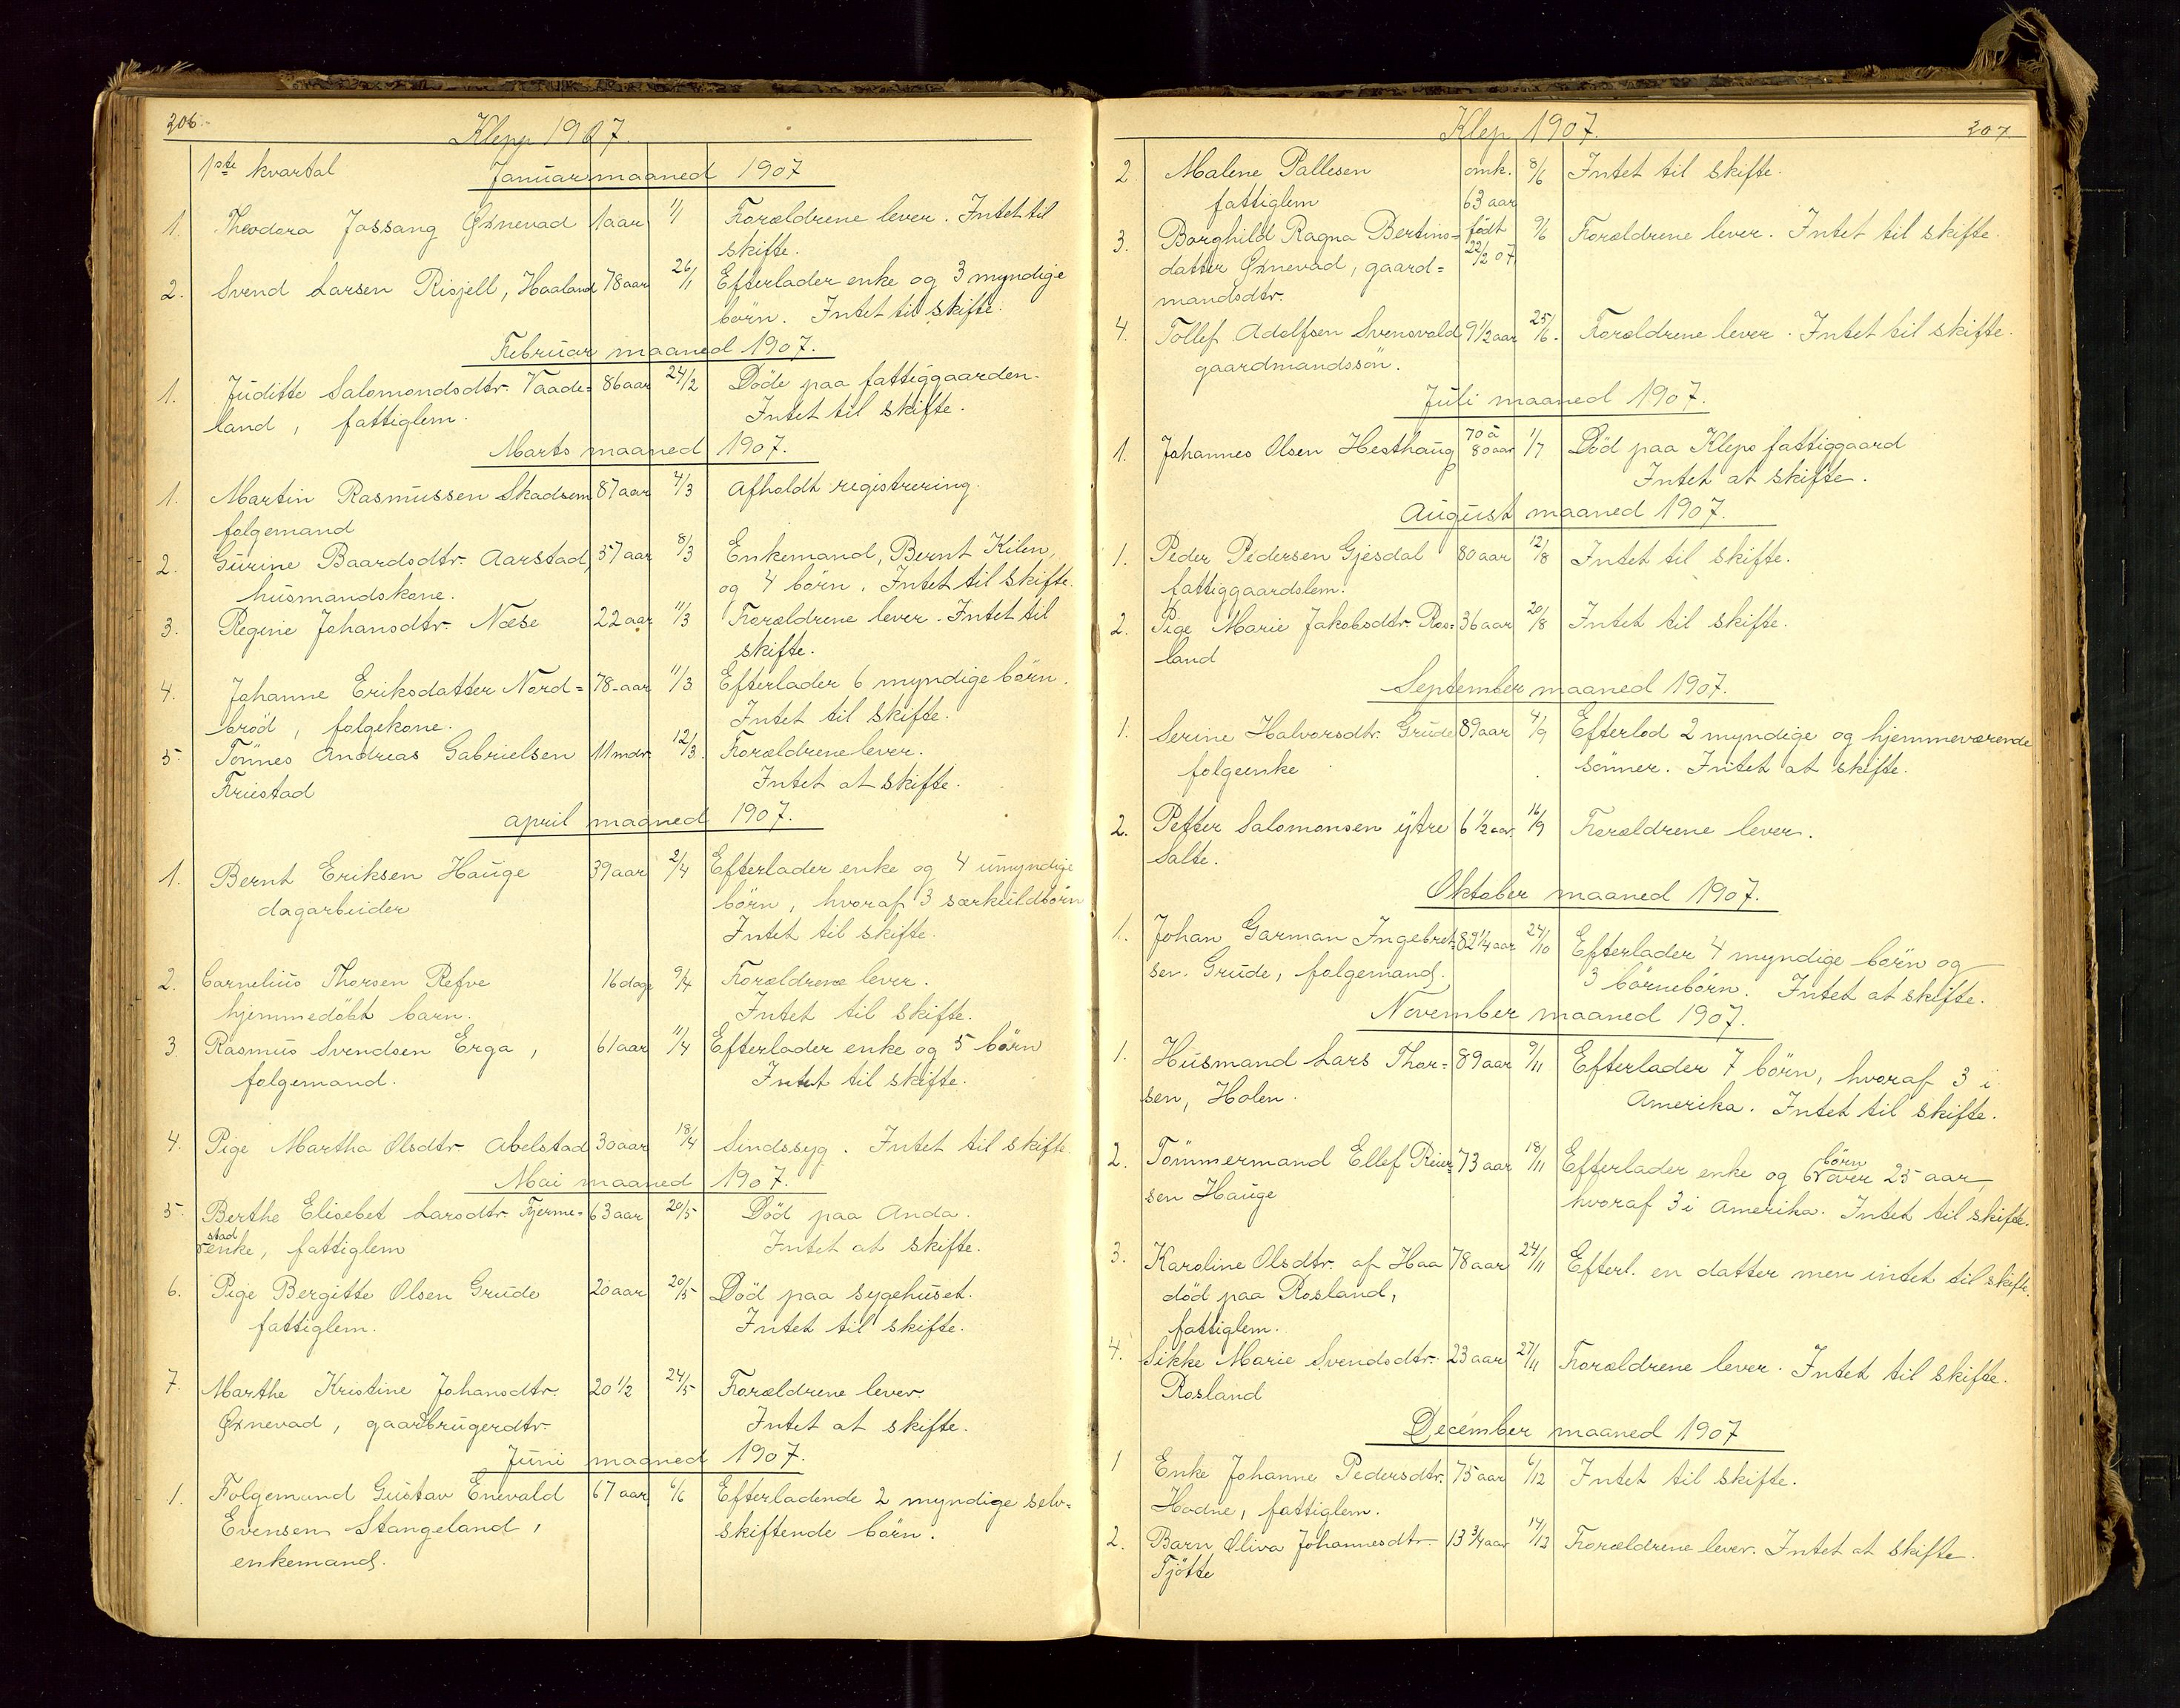 206.
Klepp 1907.
1ste kvartal
Januar maaned 1907
1. Theodora Jossang Øxnevad 1 aar 1/1 Forældrene lever. Intet til
skifte.
2. Svend Larsen Risjell, Haaland 78 aar 26/1 Efterlader enke og 3 myndige
börn. Intet til skifte.
Februar maaned 1907.
1. Juditte Salomondsdtr. Vaade= 86 aar 24/2 Döde paa fattiggaarden.
land, fattiglem. Intet til skifte.
Marts maaned 1907.
1. Martin Rasmussen Skadsem 87 aar 7/3 Afholdt registrering.
folgemand
2. Gurine Baardsdtr. Aarstad, 37 aar 8/3 Enkemand, Bernt Kilen,
husmandskone. og 4 börn. Intet til skifte.
3. Regine Johansdtr. Næse 22 aar 11/3 Forældrene lever. Intet til
skifte.
4. Johanne Eriksdatter Nord= 78 aar 11/3 Efterlader 6 myndige börn.
bröd, folgekone. Intet til skifte.
5. Tönnes Andreas Gabrielsen 11 mdr. 12/3. Forældrene lever.
Friestad Intet at skifte.
April maaned 1907.
1. Bernt Eriksen Hauge 39 aar 2/4 Efterlader enke og 4 umyndige
dagarbeider börn, hvoraf 3 særkuldbörn
Intet til skifte.
2. Cornelius Thorsen Refve 16 dage 9/4 Forældrene lever.
hjemmedöbt barn. Intet til skifte.
3. Rasmus Svendsen Erga, 61 aar 11/4 Efterlader enke og 5 börn
folgemand. Intet til skifte.
4. Pige Martha Olsdtr. Abelstad 30 aar 18/4 Sindssyg. Intet til skifte.
Mai maaned 1907.
5. Berthe Elisebet Larsdtr. Tjerme= 63 aar 20/5 Död paa Anda.
stad
enke, fattiglem Intet at skifte.
6. Pige Bergitte Olsen Grude 20 aar 20/5 Död paa sygehuset.
fattiglem. Intet til skifte.
7. Marthe Kristine Johansdtr. 20 1/2 24/5 Forældrene lever.
Øxnevad, gaarbrugerdtr. Intet at skifte.
Juni maaned 1907.
1. Folgemand Gustav Enevald 67 aar 6/6 Efterladende 2 myndige selv=
Evensen Stangeland, skiftende börn.
enkemand.
Klep 1907.
207.
2 Malene Pallesen omk. 8/6 Intet til skifte.
fattiglem 63 aar
3. Borghild Ragna Bertins= födt 9/6 Forældrene lever. Intet til skifte.
datter Øxnevad, gaard= 22/2 07
mandsdtr.
4. Tollef Adolfsen Svensvold 9 1/2 aar 25/6. Forældrene lever. Intet til skifte.
gaardmandssön.
Juli maaned 1907.
1. Johannes Olsen Hesthaug 70 à 80 aar 1/7 Död paa Kleps fattiggaard
Intet at skifte.
August maaned 1907.
1. Peder Pedersen Gjesdal 80 aar 12/8 Intet til skifte.
fattiggaardslem.
2. Pige Marie Jakobsdtr. Ros= 36 aar 20/8 Intet til skifte.
land
September maaned 1907.
1. Serine Halvorsdtr. Grude 89 aar 4/9 Efterlod 2 myndige og hjemmeværende
folgeenke sönner. Intet at skifte.
2. Petter Salomonsen ytre 6 1/2 aar 16/9 Forældrene lever.
Salte.
Oktober maaned 1907.
1. Johan Garman Ingebret= 82 1/4 aar 24/10 Efterlader 4 myndige börn og
sen. Grude, folgemand. 3 börnebörn. Intet at skifte.
November maaned 1907.
1. Husmand Lars Thor= 89 aar 9/11 Efterlader 7 börn, hvoraf 3 i
sen, Holen. Amerika. Intet til skifte.
2. Tömmermand Ellef Reier= 73 aar 18/11 Efterlader enke og 6 börn over 25 aar,
sen Hauge hvoraf 3 i Amerika. Intet til skifte.
3. Karoline Olsdtr. af Haa 78 aar 24/11 Efterl. en datter men intet til skifte.
död paa Rosland,
fattiglem.
4. Sikke Marie Svendsdtr. 23 aar 27/11 Forældrene lever. Intet til skifte.
Rosland
December maaned 1907
1 Enke Johanne Pedersdtr. 75 aar 6/12 Intet til skifte.
Hodne, fattiglem.
2. Barn Oliva Johannesdtr. 13 3/4 aar 14/12 Forældrene lever. Intet at skifte.
Tjötte